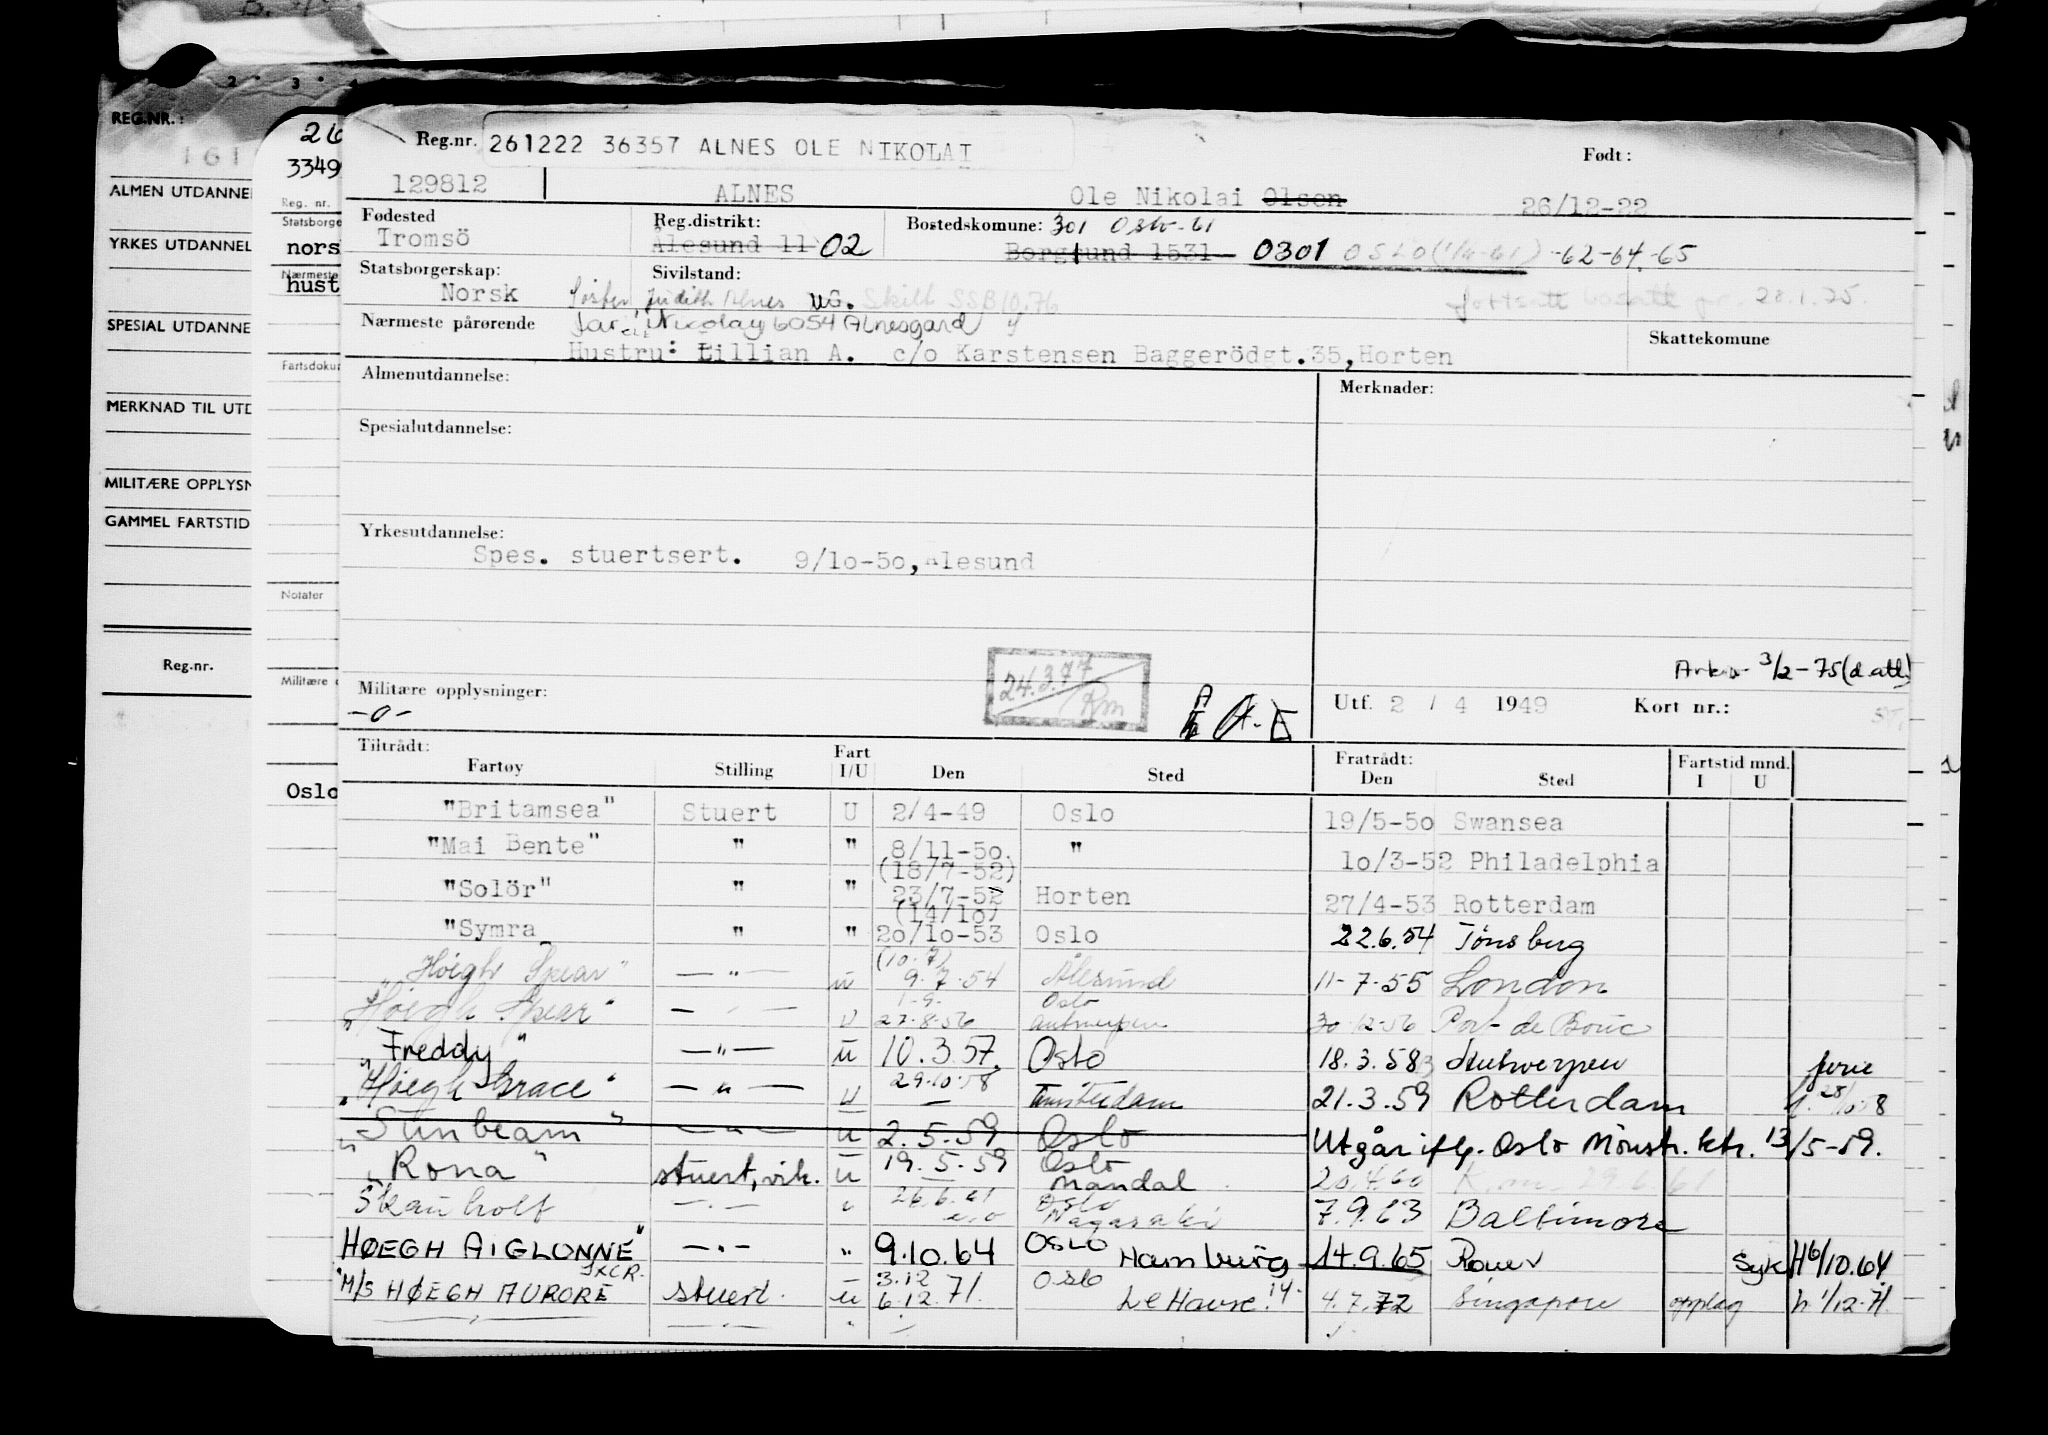 REG.NR.:
161
ALMEN UTDANNE
YRKES UTDANNEL
SPESIAL UTDANNE
MERKNAD TIL UTD
MILITÆRE OPPLYSN
GAMMEL FARTSTID
Reg.nr.
26
3349
Reg. nr.
Statsborge
nors
Nærmeste
hust
Fartsdokur
Notater
Militære o
Oslo
Reg.nr. 261222 36357 ALNES OLE NIKOLAI
Født:
129812 ALNES Ole Nikolai Olsen 26/12-22
Fødested Reg.distrikt: Bostedskomune: 301 Oslo-61
Tromsö Ålesund 11 02 Borgsund 1531 0301 OSLO (1/4-61) -62-64-65
Statsborgerskap: Sivilstand:
Norsk Søster Judith Alnes UG. Skilt SSB 10.76 fortsatt bosatt pr. 28.1.75.
Nærmeste pårørende Nicolay 6054 Alnesgard
Skattekomune
Hustru: Lillian A. c/o Karstensen Baggerödgt.35, Horten
Almenutdannelse: Merknader:
Spesialutdannelse:
Yrkesutdannelse:
Spes. stuertsert. 9/10-50, Ålesund
24.3.77
Rm
Arkiv 3/2-75 (d.att)
Militære opplysninger: -0-
Utf. 2 / 4 1949 Kort nr.:
Tiltrådt: Fratrådt:
Fartøy Stilling Fart I/U Den Sted Den Sted Fartstid mnd. I U
"Britamsea" Stuert U 2/4-49 Oslo 19/5-50 Swansea
"Mai Bente" " " 8/11-50 " 10/3-52 Philadelphia
(18/7-52)
"Solör" " " 23/7-52 Horten 27/4-53 Rotterdam
(14/10)
"Symra " " 20/10-53 Oslo 22.6.54 Tönsberg
(10.7)
"Höegh Spear" —"— u 9.7.54 Ålesund 11-7-55 London
1-9- Oslo
"Höegh Spear" — " — U 27.8.56 Antwerpen 30-12-56 Port de Bouc
"Freddy" —"— u 10.3.57. Oslo 18.3.58 Antwerpen ferie
29.10.58
"Høegh Grace" —"— U — Amsterdam 21.3.59 Rotterdam
"Sunbeam" —"— u 2.5.59 Oslo Utgår iflg. Oslo Mönstr. ktr. 13/5-59.
"Rona" stuert, vik. U 19.5.59 Oslo Mandal 20.4.60
Skauholt —"— " 26.6.61 Oslo Nagasaki 7.9.63 Baltimore
HØEGH AIGLONNE" —"— " 9.10.64 Oslo Hamburg 14.9.65 Rouen Syk H6/10.64
"M/S HØEGH AURORE stuert. u 3.12 6.12.71. Oslo Le Havre 4.7.72 Singapore opplag h 1/12-71